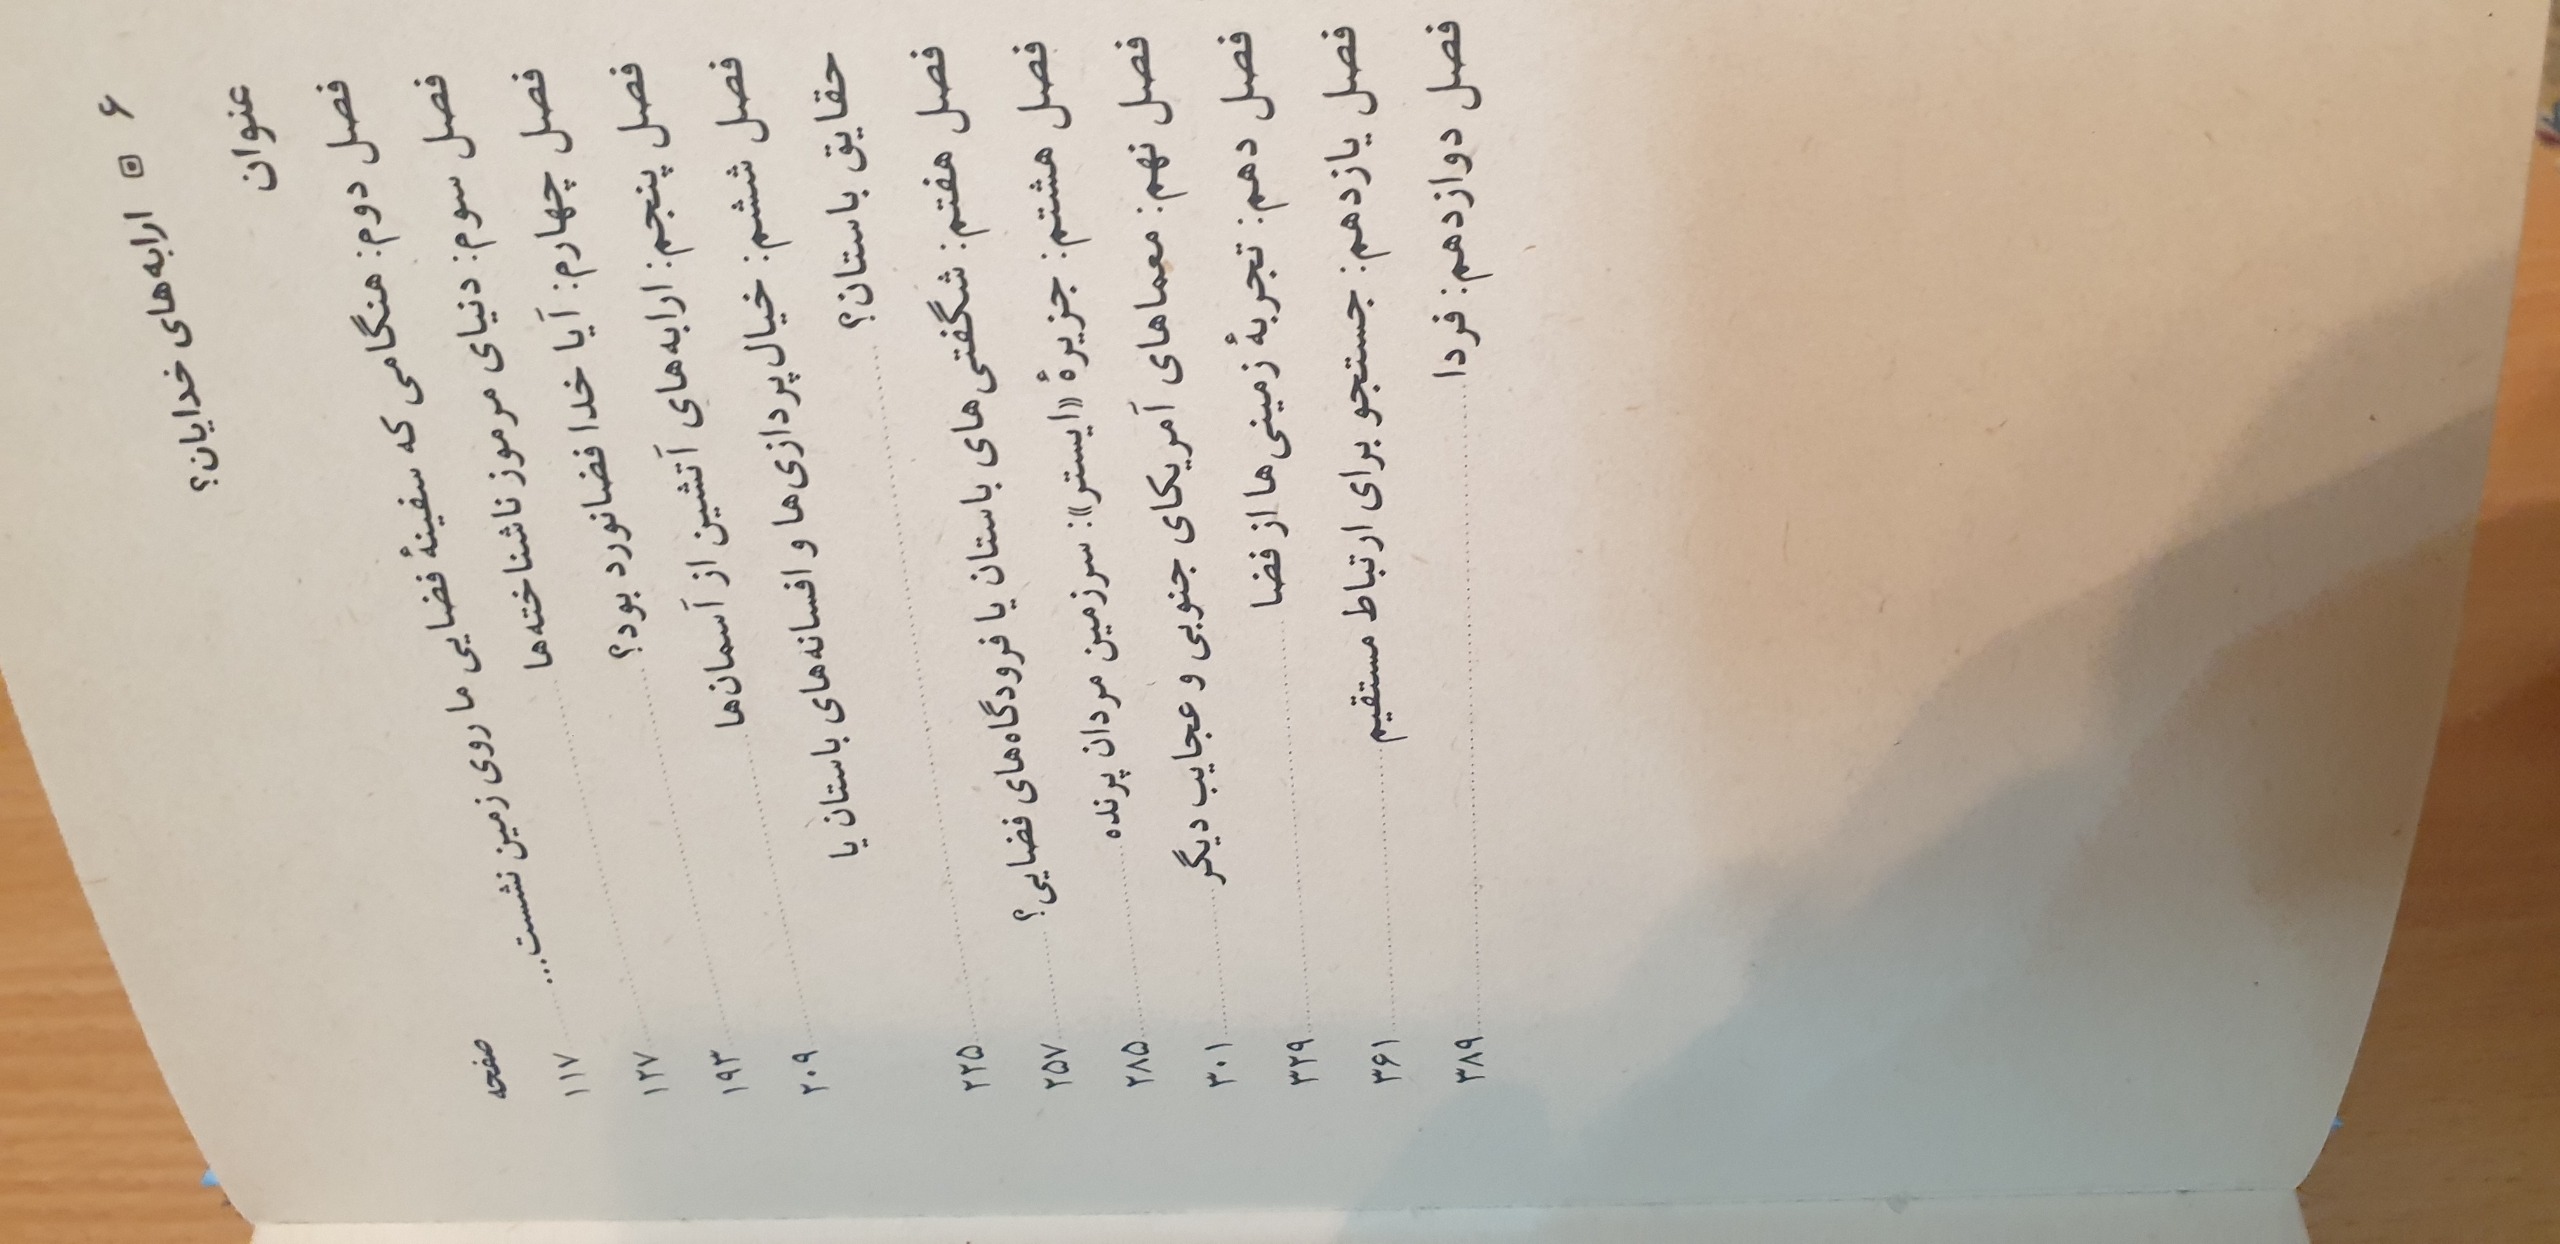 ۶ ▣ ارابه‌های خدایان؟
عنوان صفحه
فصل دوم: هنگامی که سفینهٔ فضایی ما روی زمین نشست... ۱۱۷
فصل سوم: دنیای مرموز ناشناخته‌ها ۱۲۷
فصل چهارم: آیا خدا فضانورد بود؟ ۱۹۳
فصل پنجم: ارابه‌های آتشین از آسمان‌ها ۲۰۹
فصل ششم: خیال‌پردازی‌ها و افسانه‌های باستان یا
حقایق باستان؟ ۲۲۵
فصل هفتم: شگفتی‌های باستان یا فرودگاه‌های فضایی؟ ۲۵۷
فصل هشتم: جزیرهٔ «ایستر»: سرزمین مردان پرنده ۲۸۵
فصل نهم: معماهای آمریکای جنوبی و عجایب دیگر ۳۰۱
فصل دهم: تجربهٔ زمینی‌ها از فضا ۳۲۹
فصل یازدهم: جستجو برای ارتباط مستقیم ۳۶۱
فصل دوازدهم: فردا ۳۸۹